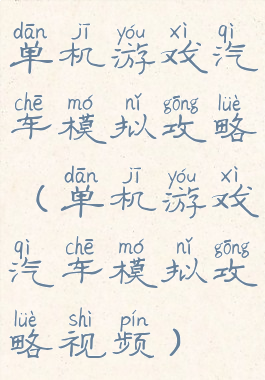 dān jī yóu xì qì
单机游戏汽
chē mó nǐ gōng lüè
车模拟攻略
dān jī yóu xì
（单机游戏
qì chē mó nǐ gōng
汽车模拟攻
lüè shì pín
略视频）